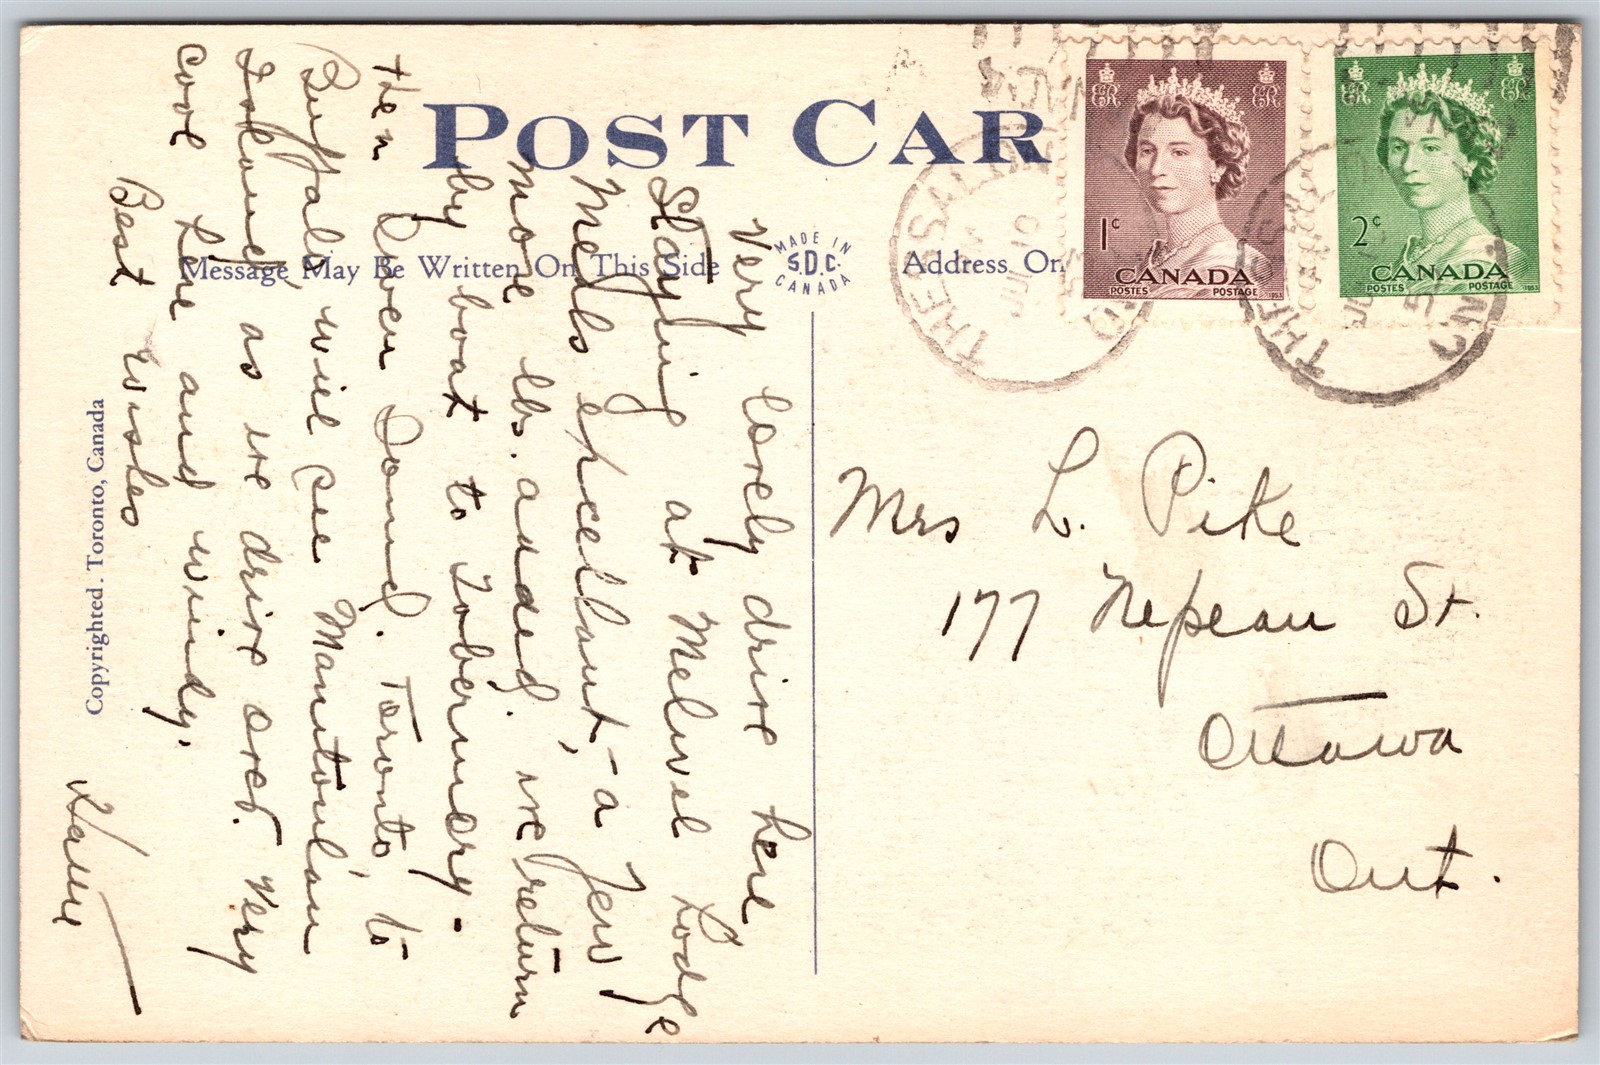 POST CAR
Message May Be Written On This Side
MADE IN
S.D.C.
CANADA
Address On
Copyrighted. Toronto, Canada
Very lovely drive here
Staying at Melwel Lodge
Meals excellant, - a few
more lbs. added. we return
by boat to Tobermory -
then Owen Sound. Toronto, to
Buffalo, will see Manitoulan
Island, as we drive over. Very
cool here and windy.
Best wishes
Mrs L. Pike
177 Nepean St.
Ottawa
Ont.
ER ER
1c
CANADA
POSTES POSTAGE 1953
ER ER
2c
CANADA
POSTES POSTAGE 1953
THESSALON